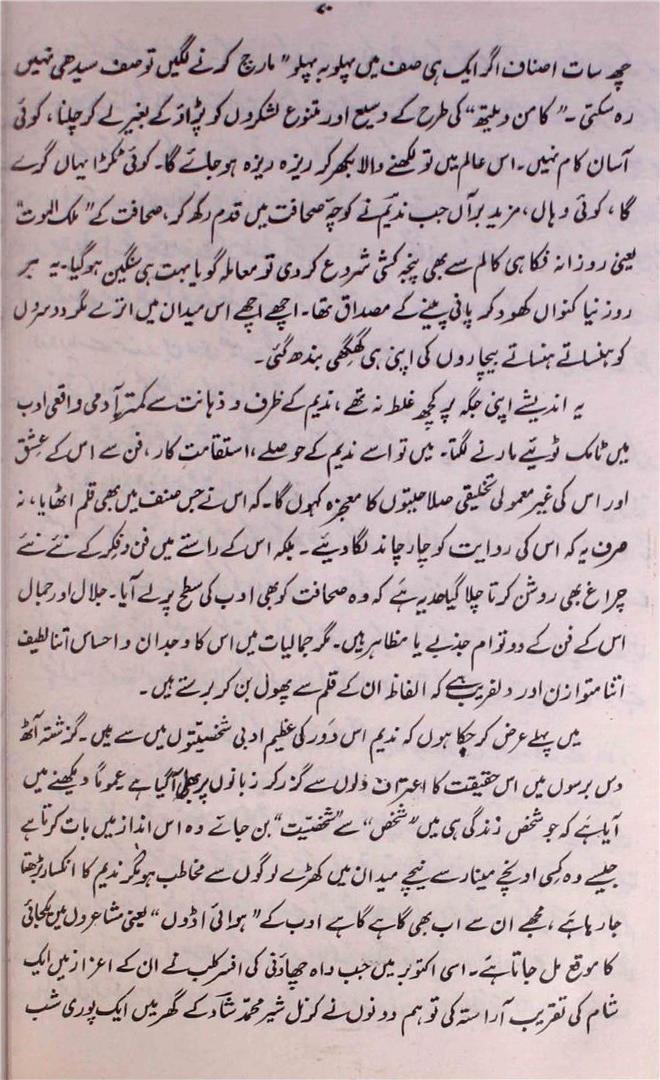 ۷۰
چھ سات اصناف اگر ایک ہی صف میں پہلو بہ پہلو "مارچ کرنے لگیں تو صف سیدھی نہیں
رہ سکتی۔ "کامن ویلتھ" کی طرح کے وسیع اور متنوع لشکروں کو پڑاؤ کے بغیر لے کر چلنا، کوئی
آسان کام نہیں۔ اس عالم میں تو لکھنے والا بکھر کر ریزہ ریزہ ہو جائے گا۔ کوئی ٹکڑا یہاں گرے
گا، کوئی وہاں، مزید برآں جب ندیم نے کوچۂ صحافت میں قدم رکھ کر، صحافت کے "ملک الموت"
یعنی روزانہ فکاہی کالم سے بھی پنجہ کشی شروع کر دی تو معاملہ گویا بہت ہی سنگین ہو گیا۔ یہ ہر
روز نیا کنواں کھود کر پانی پینے کے مصداق تھا۔ اچھے اچھے اس میدان میں اترے مگر دوسروں
کو ہنساتے ہنساتے بیچاروں کی اپنی ہی گھگھی بندھ گئی۔
یہ اندیشے اپنی جگہ پر کچھ غلط نہ تھے، ندیم کے ظرف و ذہانت سے کمتر آدمی واقعی ادب
میں ٹامک ٹوئیے مارنے لگتا۔ میں تو اسے ندیم کے حوصلے، استقامتِ کار، فن سے اس کے عشق
اور اس کی غیر معمولی تخلیقی صلاحیتوں کا معجزہ کہوں گا۔ کہ اس نے جس صنف میں بھی قلم اٹھایا، نہ
صرف یہ کہ اس کی روایت کو چار چاند لگا دیئے۔ بلکہ اس کے راستے میں فن و فکر کے نئے نئے
چراغ بھی روشن کرتا چلا گیا حد یہ ہے کہ وہ صحافت کو بھی ادب کی سطح پر لے آیا۔ جلال اور جمال
اس کے فن کے دو توام جذبے یا مظاہر ہیں۔ مگر جمالیات میں اس کا وجدان و احساس اتنا لطیف
اتنا متوازن اور دلفریب ہے کہ الفاظ ان کے قلم سے پھول بن کر برستے ہیں۔
میں پہلے عرض کر چکا ہوں کہ ندیم اس دَور کی عظیم ادبی شخصیتوں میں سے ہیں۔ گزشتہ آٹھ
دس برسوں میں اس حقیقت کا اعتراف دلوں سے گزر کر زبانوں پر بھی آگیا ہے عموماً دیکھنے میں
آیا ہے کہ جو شخص زندگی ہی میں "شخص" سے "شخصیّت" بن جائے وہ اس انداز میں بات کرتا ہے
جیسے وہ کسی اونچے مینار سے نیچے میدان میں کھڑے لوگوں سے مخاطب ہو مگر ندیم کا انکسار بڑھتا
جا رہا ہے، مجھے ان سے اب بھی گاہے گاہے ادب کے "ہوائی اڈوں" یعنی مشاعروں میں یکجائی
کا موقع مل جاتا ہے۔ اسی اکتوبر میں جب واہ چھاؤنی کی افسر کلب نے ان کے اعزاز میں ایک
شام کی تقریب آراستہ کی تو ہم دونوں نے کرنل شیر محمّد شاد کے گھر میں ایک پوری شب